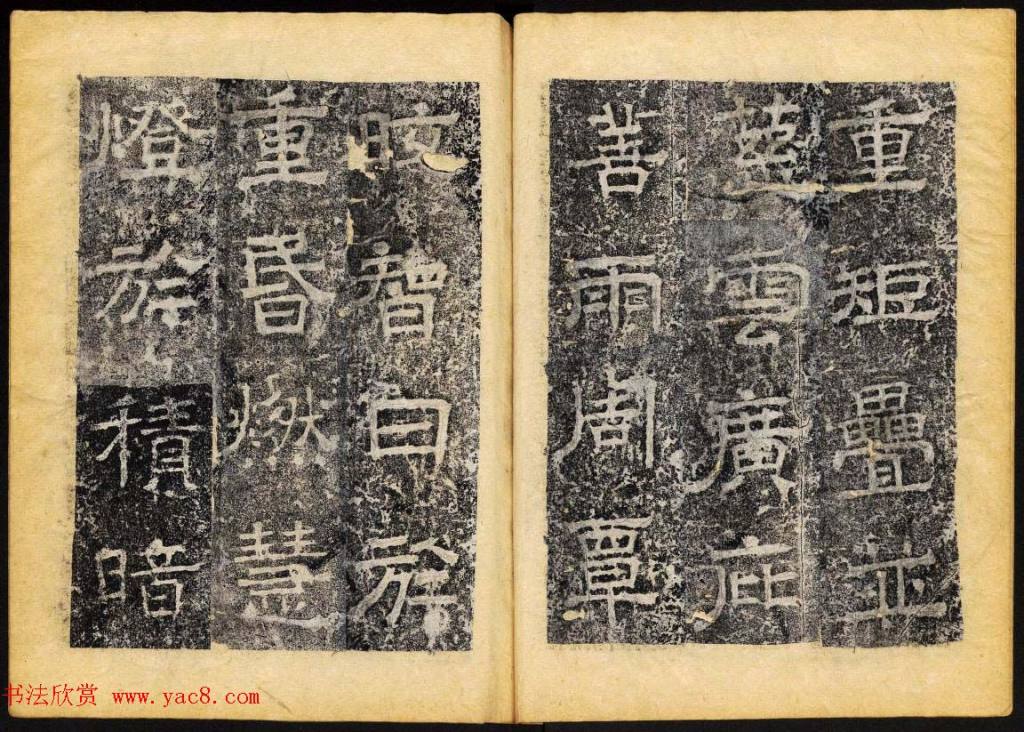 重矩疊並
慈雲廣庇
善雨周覃
智日於
重昏燃慧
燈於積暗
书法欣赏 www.yac8.com